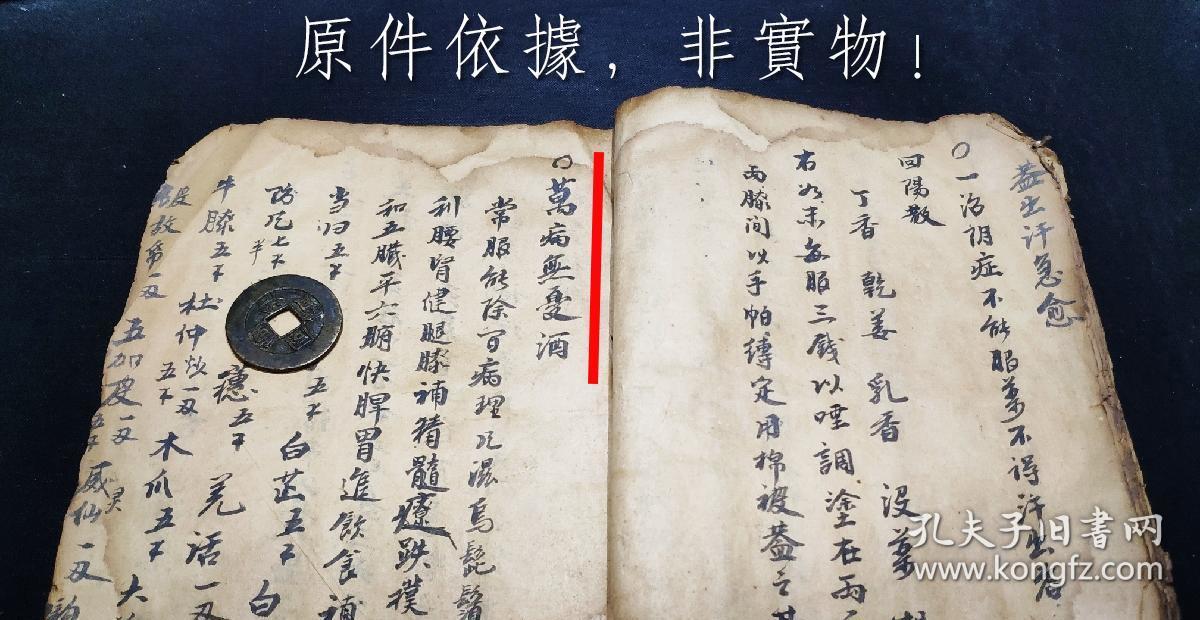 原件依據，非實物！
蓋出汗急愈
〇一治阴症不能服药不得汗出
回陽散
丁香 乾姜 乳香 没药
右为末每服三錢以唾調塗在两
两膝间以手帕縛定用棉被蓋之
〇萬病無憂酒
常服能除百病理氣滋烏髭鬚
利腰腎健腿膝補精髓療跌撲
和五臟平六腑快脾胃進飲食補
当归五
防风七 半 五 白芷五 白
牛膝五 杜仲炒一 五 木瓜五 大
五加皮一 五 威灵仙一
羌活一
孔夫子旧书网
www.kongfz.com